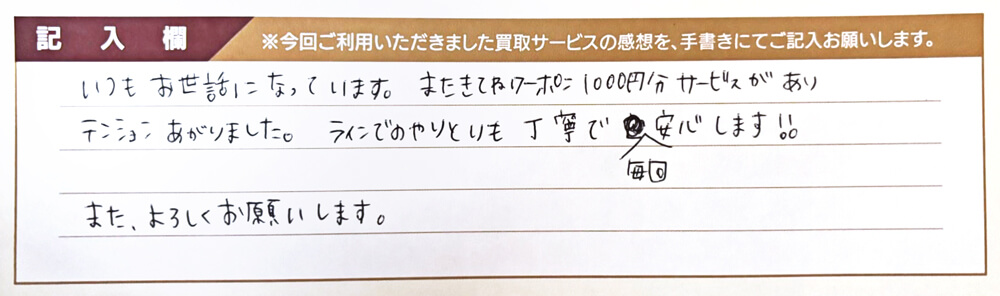 記入欄
※今回ご利用いただきました買取サービスの感想を、手書きにてご記入お願いします。
いつもお世話になっています。またきてねクーポン1000円分サービスがあり
テンションあがりました。ラインでのやりとりも丁寧で毎回安心します!!
また、よろしくお願いします。